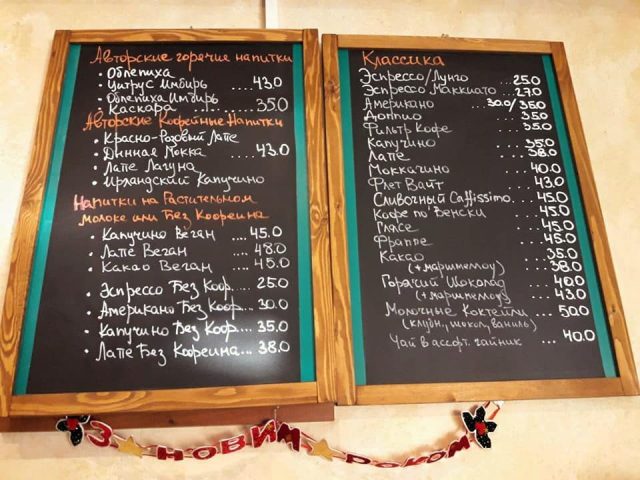 Авторские горячие напитки
• Облепиха
• Цитрус Имбирь .... 43.0
• Облепиха Имбирь
• Каскара .... 35.0
Авторские Кофейные Напитки
• Красно-Розовый Лате
• Дынная Мокка .... 43.0
• Лате Лагуна
• Ирландский Капучино
Напитки на Растительном
молоке или Без Кофеина
• Капучино Веган .... 45.0
• Лате Веган .... 48.0
• Какао Веган .... 45.0
• Эспрессо Без Коф.... 25.0
• Американо Без Коф... 30.0
• Капучино Без Коф.... 35.0
• Лате Без Кофеина... 38.0
Классика
Эспрессо/Лунго ... 25.0
Эспрессо Маккиато ... 27.0
Американо 30.0/35.0
Доппио ... 35.0
Фильтр Кофе ... 35.0
Капучино ... 35.0
Лате ... 38.0
Моккачино ... 40.0
Флет Вайт ... 43.0
Сливочный Caffissimo. 45.0
Кофе по Венски ... 45.0
Глясе ... 45.0
Фраппе ... 45.0
Какао ... 35.0
(+маршмеллоу) ... 38.0
Горячий Шоколад ... 40.0
(+маршмеллоу) ... 43.0
Молочные Коктейли ... 50.0
(клубн., шокол, ваниль)
Чай в ассорт. чайник ... 40.0
З НОВИМ РОКОМ